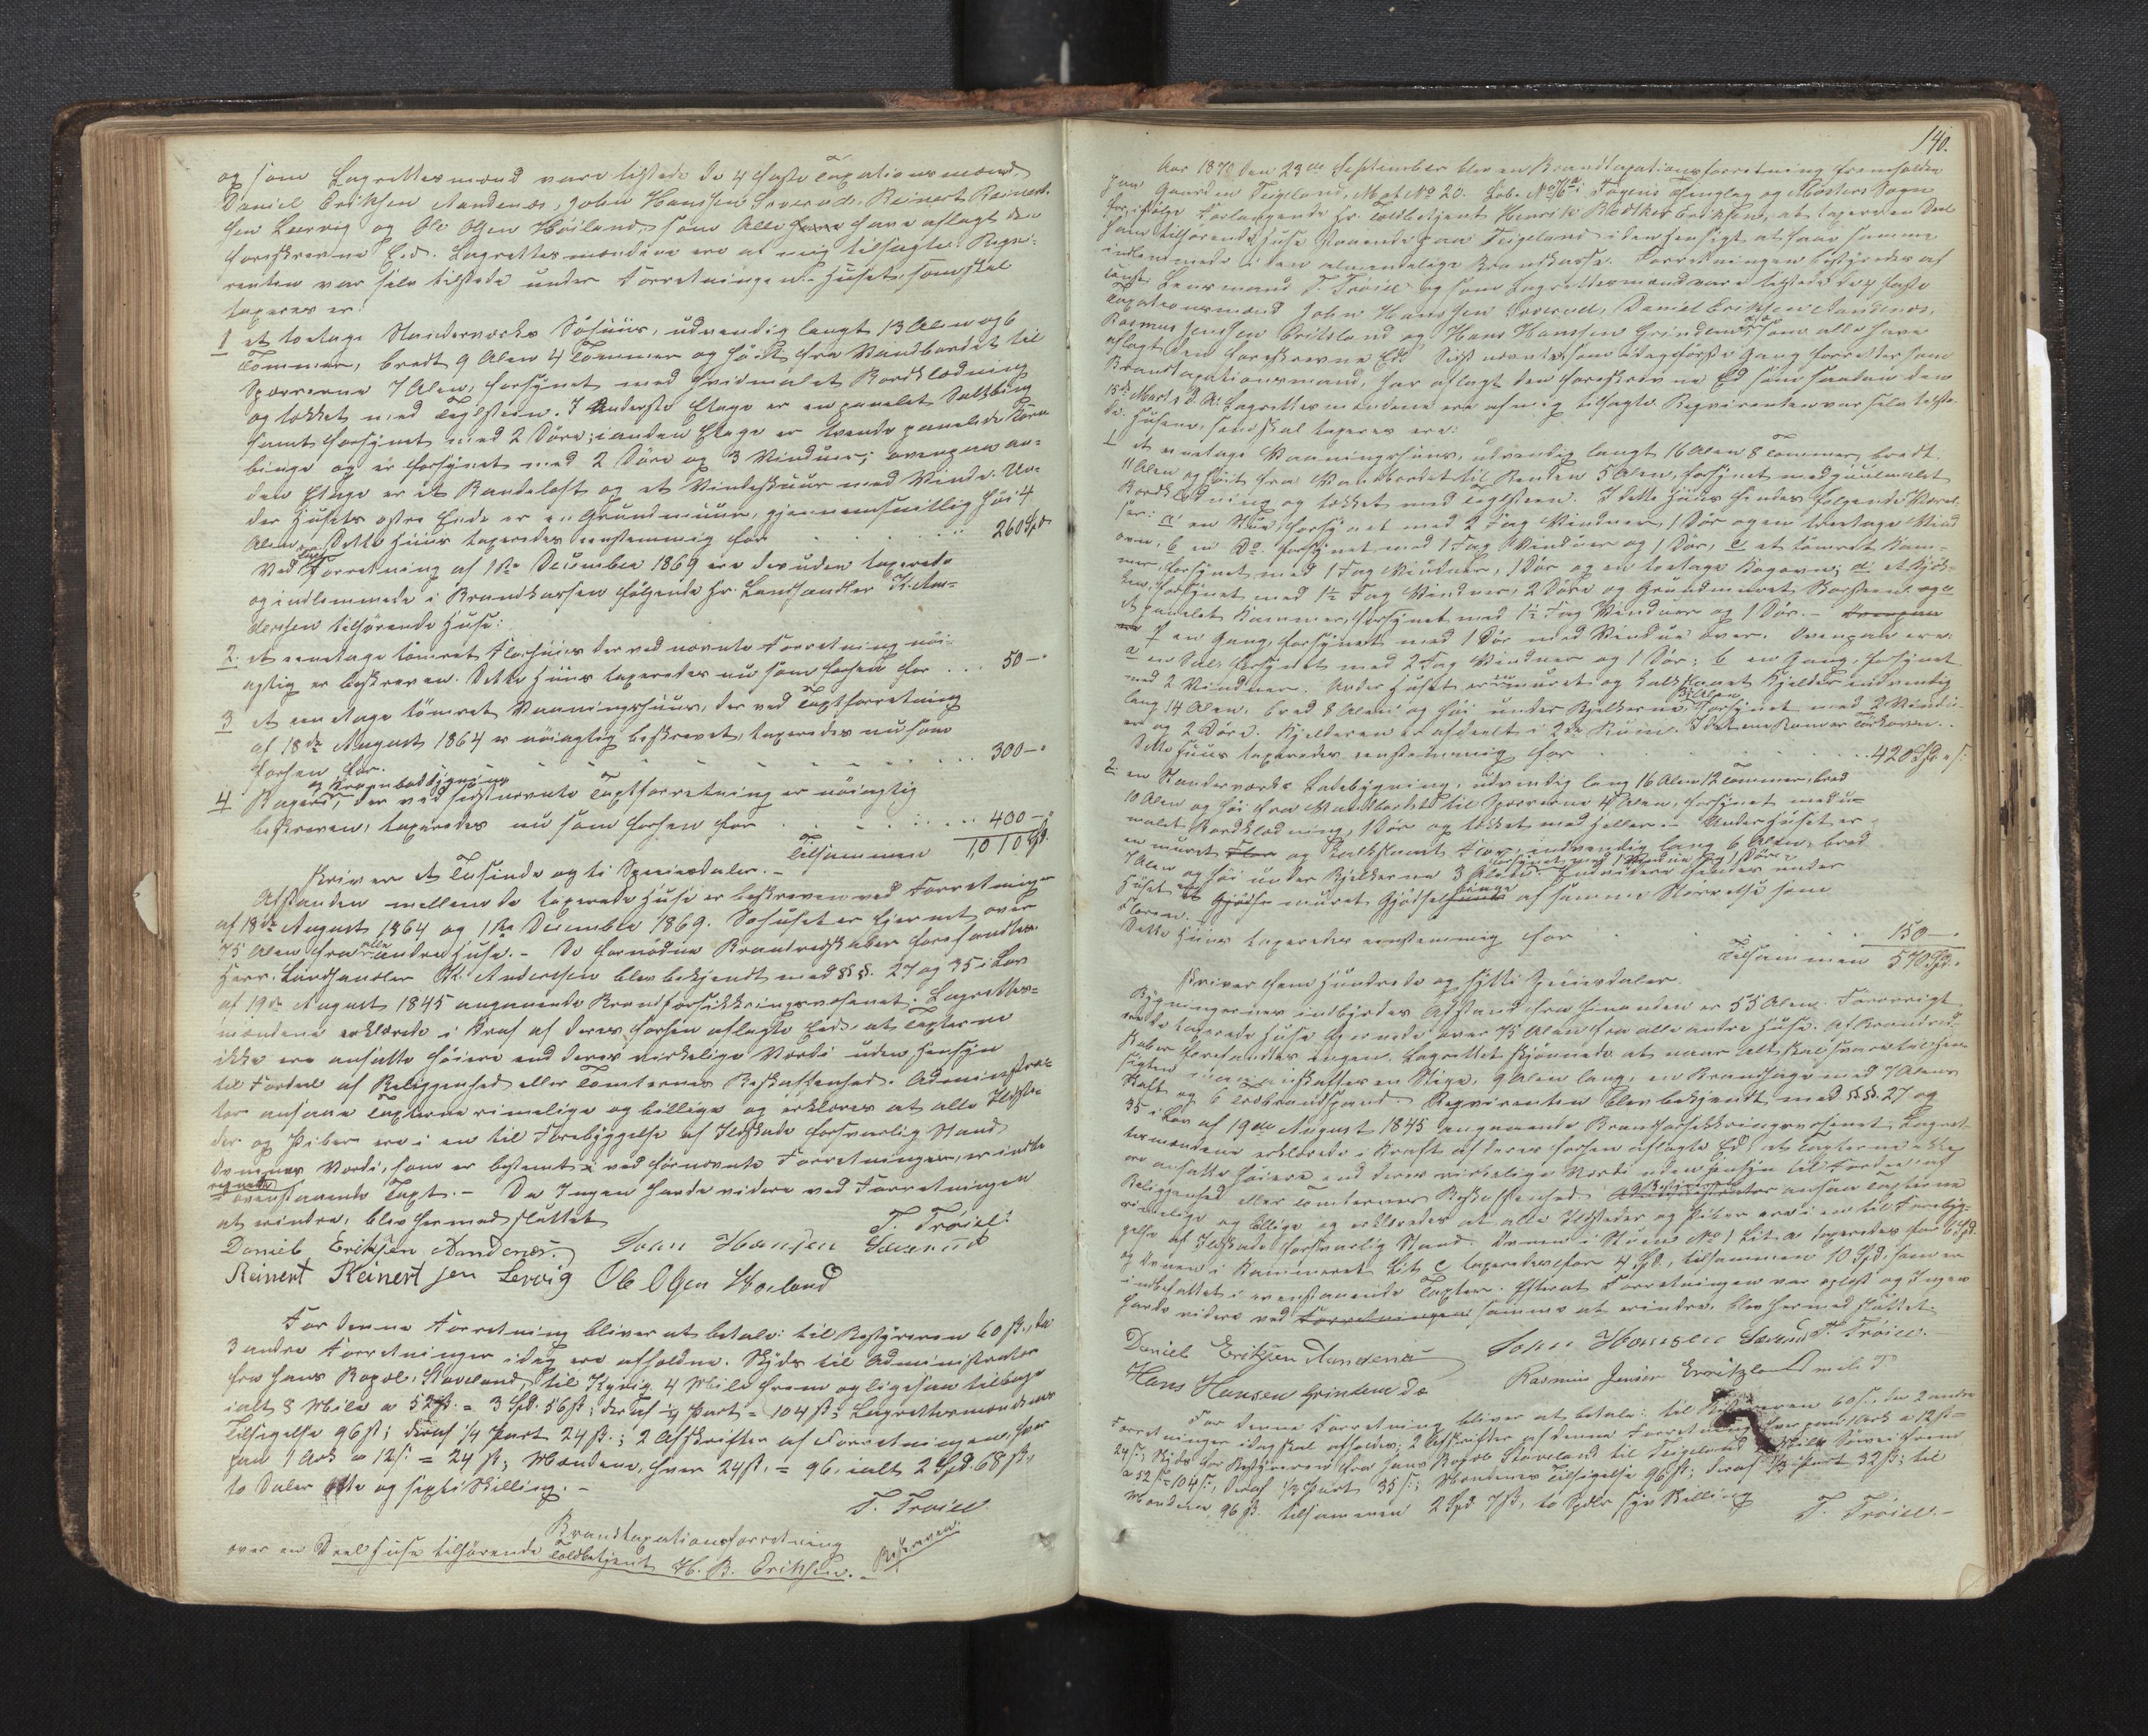 og som Lagrettesmænd vare tilstede de 4 faste Taxationsmænd,
Daniel Eriksen Aandenæs, John Hanssen Severud, Reinert Reinert-
sen Lervig og Ole Olsen Høiland, som Alle have aflagt den
foreskrevne Eed. Lagrettesmændene ere af mig tilsagte. Requi-
renten var selv tilstede under Forretningen. Huset, som skal
taxeres er:
1 et toetages Standerværks Søhuus, udvendig langt 13 Alen og 6
Tommer, bredt 9 Alen 4 Tommer og høit fra Vandbordet til
Sparrerne 7 Alen, forsynet med hvidmalet Bordklædning
og tækket med Teglsteen. I underste Etage er en panelet Saltbing
samt forsynet med 2 Døre; i anden Etage er tvende panelede Korn-
binge og er forsynet med 2 Døre og 3 Vinduer; ovenpaa an-
den Etage er et Bandeloft og et Vindeskuur med Vinde. Un-
der Husets østre Ende er en Grundmuur, gjennemsnitlig høi 4
Alen. Dette Huus taxeredes eenstemmig for 260 Spd
Ved Taxtforretning af 1ste December 1869 ere desuden taxerede
og indlemmede i Brandkassen følgende Hr. Landhandler K. An-
dersen tilhørende Huse:
2. et eenetages tømret Fløihuus der ved nævnte Forretning nøi-
agtig er beskreven. Dette Huus taxeredes nu som forhen for 50 -
3 et een etages tømret Vaaningshuus, der ved Taxtforretning
af 18de August 1864 er nøiagtig beskrevet, taxeredes nu som
forhen for 300 -
4 Bageri og Krambodbygning, der ved sidstnævnte Taxtforretning er nøiagtig
beskreven, taxeredes nu som forhen for 400 -
Tilsammen 1010 Spd.
skriver et Tusinde og ti Speciesdaler. -
Afstanden mellem de taxerede Huse er beskreven ved Forretninger
af 18de August 1864 og 1ste December 1869. Søhuset er fjernet over
75 Alen fra alle andre Huse. - De fornødne Brandredskaber forefandtes.
Herr Landhandler K. Andersen blev bekjendt med §§. 27 og 35 i Lov
af 19de August 1845 angaaende Brandforsikkringsvæsenet. Lagrettes-
mændene erklærede i Kraft af deres forhen aflagte Eed, at Taxterne
ikke ere ansatte høiere end deres virkelige Værdi uden Hensyn
til Fordeel af Beliggenhed eller Tomternes Beskaffenhed. Administra-
tor ansaae Taxterne rimelige og billige og erklæres at alle Ildste-
der og Piber ere i en til Forebyggelse af Ildskade forsvarlig Stand
Ovnenes Værdi, som er bestemt ved førnævnte Forretninger, er indbe-
regnede i ovenstaaende Taxt. - Da Ingen havde videre ved Forretningen
at erindre, blev hermed sluttet
T. Trøien.
Daniel Eriksen Aandenæs. John Hansen Sæverud
Reinert Reinertsen Lervig Ole Olsen Høiland
For denne Forretning bliver at betale: til Bestyreren 60 ß., da
3 andre Forretninger idag ere afholdne. Skyds til Administrator
fra hans Bopæl, Staveland til Kyrvig 4 Mile frem og ligesaa tilbage
ialt 8 Mile a 52 ß. = 3 Spd. 56 ß; deraf 1/4 Part = 104 ß; Lagrettesmændenes
Tilsigelse 96 ß; deraf 1/4 Part 24 ß.; 2 Afskrifter af Forretningen, hver
paa 1 Ark a 12 ß. = 24 ß; Mændene, hver 24 ß. = 96, ialt 2 Spd. 68 ß,
to Daler otte og sexti Skilling. -
T. Trøien
Brandtaxationsforretning
over en Deel Huse tilhørende Toldbetjent H. B. Eriksen. - Beskreven.
140.
Aar 1870 den 23de September blev en Brandtaxationsforretning fremholden
paa Gaarden Teigeland, Mat. No 20. Løb. No 76a i Fogens Thinglag og Klosters Sogn
for, ifølge Forlangende Hr. Toldbetjent Henrik Bødtker Eriksen, at taxere en Deel
ham tilhørende Huse staaende paa Teigeland i den Hensigt at faae samme
indlemmede i den almindelige Brandkasse. Forretningen bestyredes af
const. Lensmand T. Trøien og som Lagrettesmænd vare tilstede de 4 faste
Taxationsmænd John Hanssen Severud, Daniel Eriksen Aandenæs,
Rasmus Jensen Eritsland og Hans Hanssen Grindem, som alle have
aflagt den foreskrevne Eed. Sidstnævnte, som idag første Gang forretter som
Brandtaxationsmand, har aflagt den foreskrevne Ed som saadan den
15de Marts d. A. Lagrettesmændene ere af mig tilsagte. Requirenten var selv tilste-
de. Husene, som skal taxeres ere:
1 et eenetages Vaaningshuus, udvendig langt 16 Alen 8 Tommer, bredt
11 Alen og høit fra Vandbordet til Renden 5 Alen, forsynet med guulmalet
Bordklædning og tækket med Teglsteen. I dette Huus findes følgende Værel-
ser: a en Stue, forsynet med 2 Fag Vinduer, 1 Dør og en treetages Vind-
ovn, b en Do. forsynet med 1 Fag Vinduer og 1 Dør, c et tømret Kam-
mer, forsynet med 1 Fag Vinduer, 1 Dør og en toetages Kogeovn; d et Kjøk-
ken, forsynet med 1½ Fag Vinduer, 2 Døre og Grundmuret Skorsteen og e
et panelet Kammer, forsynet med 1½ Fag Vinduer og 1 Dør. - Ovenpaa
f en Gang, forsynet med 1 Dør med Vindue over. Ovenpaa ere:
a en Sal, forsynet med 2 Fag Vinduer og 1 Dør; b en Gang, forsynet
med 2 Vinduer. Under Huset er en muret og kalkslaaet Kjelder indvendig
lang 14 Alen, bred 8 Alen og høi under Bjelkerne 3½ Alen, forsynet med 2 Vindu-
er og 2 Døre. Kjelderen er afdeelt i 2de Rum. I det ene staaer Tørkeovn.
Dette Huus taxeredes eenstemmig for 420 Spd
2. en Standerværks Ladebygning, udvendig lang 16 Alen 12 Tommer, bred
10 Alen og høi fra Vandbordet til Sparrerne 4 Alen, forsynet med u-
malet Bordklædning, 1 Dør og tækket med Heller. - Under Huset er
en muret og kalkslaaet Flor, indvendig lang 6 Alen, bred
7 Alen og høi under Bjelkerne 3 Alen forsynet med 1 Vindue og 1 Dør. Endvidere findes under
Huset en muret Gjødselbinge af samme Størrelse som
Floren.
Dette Huus taxeredes eenstemmig for 150 -
Tilsammen 570 Spd.
skriver fem Hundrede og sytti Speciesdaler.
Bygningernes indbyrdes Afstand fra hinanden er 55 Alen. Forøvrigt
ere de taxerede Huse fjernede over 75 Alen fra alle andre Huse. Af Brandred-
skaber forefandtes ingen. Lagrettet skjønnede at naar alt skal svare til Hen-
sigten maae anskaffes en Stige, 9 Alen lang, en Brandhage med 7 Alens
Skaft og 6 Træbrandspand. Requirenten blev bekjendt med §§. 27 og
35 i Lov af 19de August 1845 angaaende Brandforsikkringsvæsenet. Lagret-
tesmændene erklærede i Kraft af deres forhen aflagte Ed, at Taxterne ikke
ere ansatte høiere end deres virkelige Værdi uden Hensyn til Fordeel af
Beliggenhed eller Tomternes Beskaffenhed. Bestyreren ansaa Taxterne
rimelige og billige og erklæredes at alle Ildsteder og Piber ere i en til Forebyg-
gelse af Ildskade forsvarlig Stand. Ovnen i Stuen No 1 Lit. a taxeredes for 6 Spd.
og Ovnen i Kammeret Lit. c taxeredes for 4 Spd., tilsammen 10 Spd, som er
indbefattet i ovenstaaende Taxter. Efterat Forretningen var oplæst og Ingen
havde videre ved Forretningen samme at erindre, blev hermed sluttet.
Daniel Eriksen Aandenæs John Hansen Sæverud T. Trøien. -
Hans Hansen Grindem d.æ. Rasmus Jensen Erritzland m. i. P.
For denne Forretning bliver at betale: til Bestyreren 60 ß., da 2 andre
Forretninger idag skal afholdes; 2 Afskrifter af denne Forretning hver paa 1 Ark a 12 ß =
24 ß; Skyds for Bestyreren fra hans Bopæl Staveland til Teigeland Mile Søvei frem
a 52 ß = 104 ß, deraf 1/3 Part 35 ß; Mændenes Tilsigelse 96 ß; deraf 1/3 Part 32 ß; til
Mændene 96 ß. tilsammen 2 Spd 7 ß, to Spdlr syv Skilling
T. Trøien. -